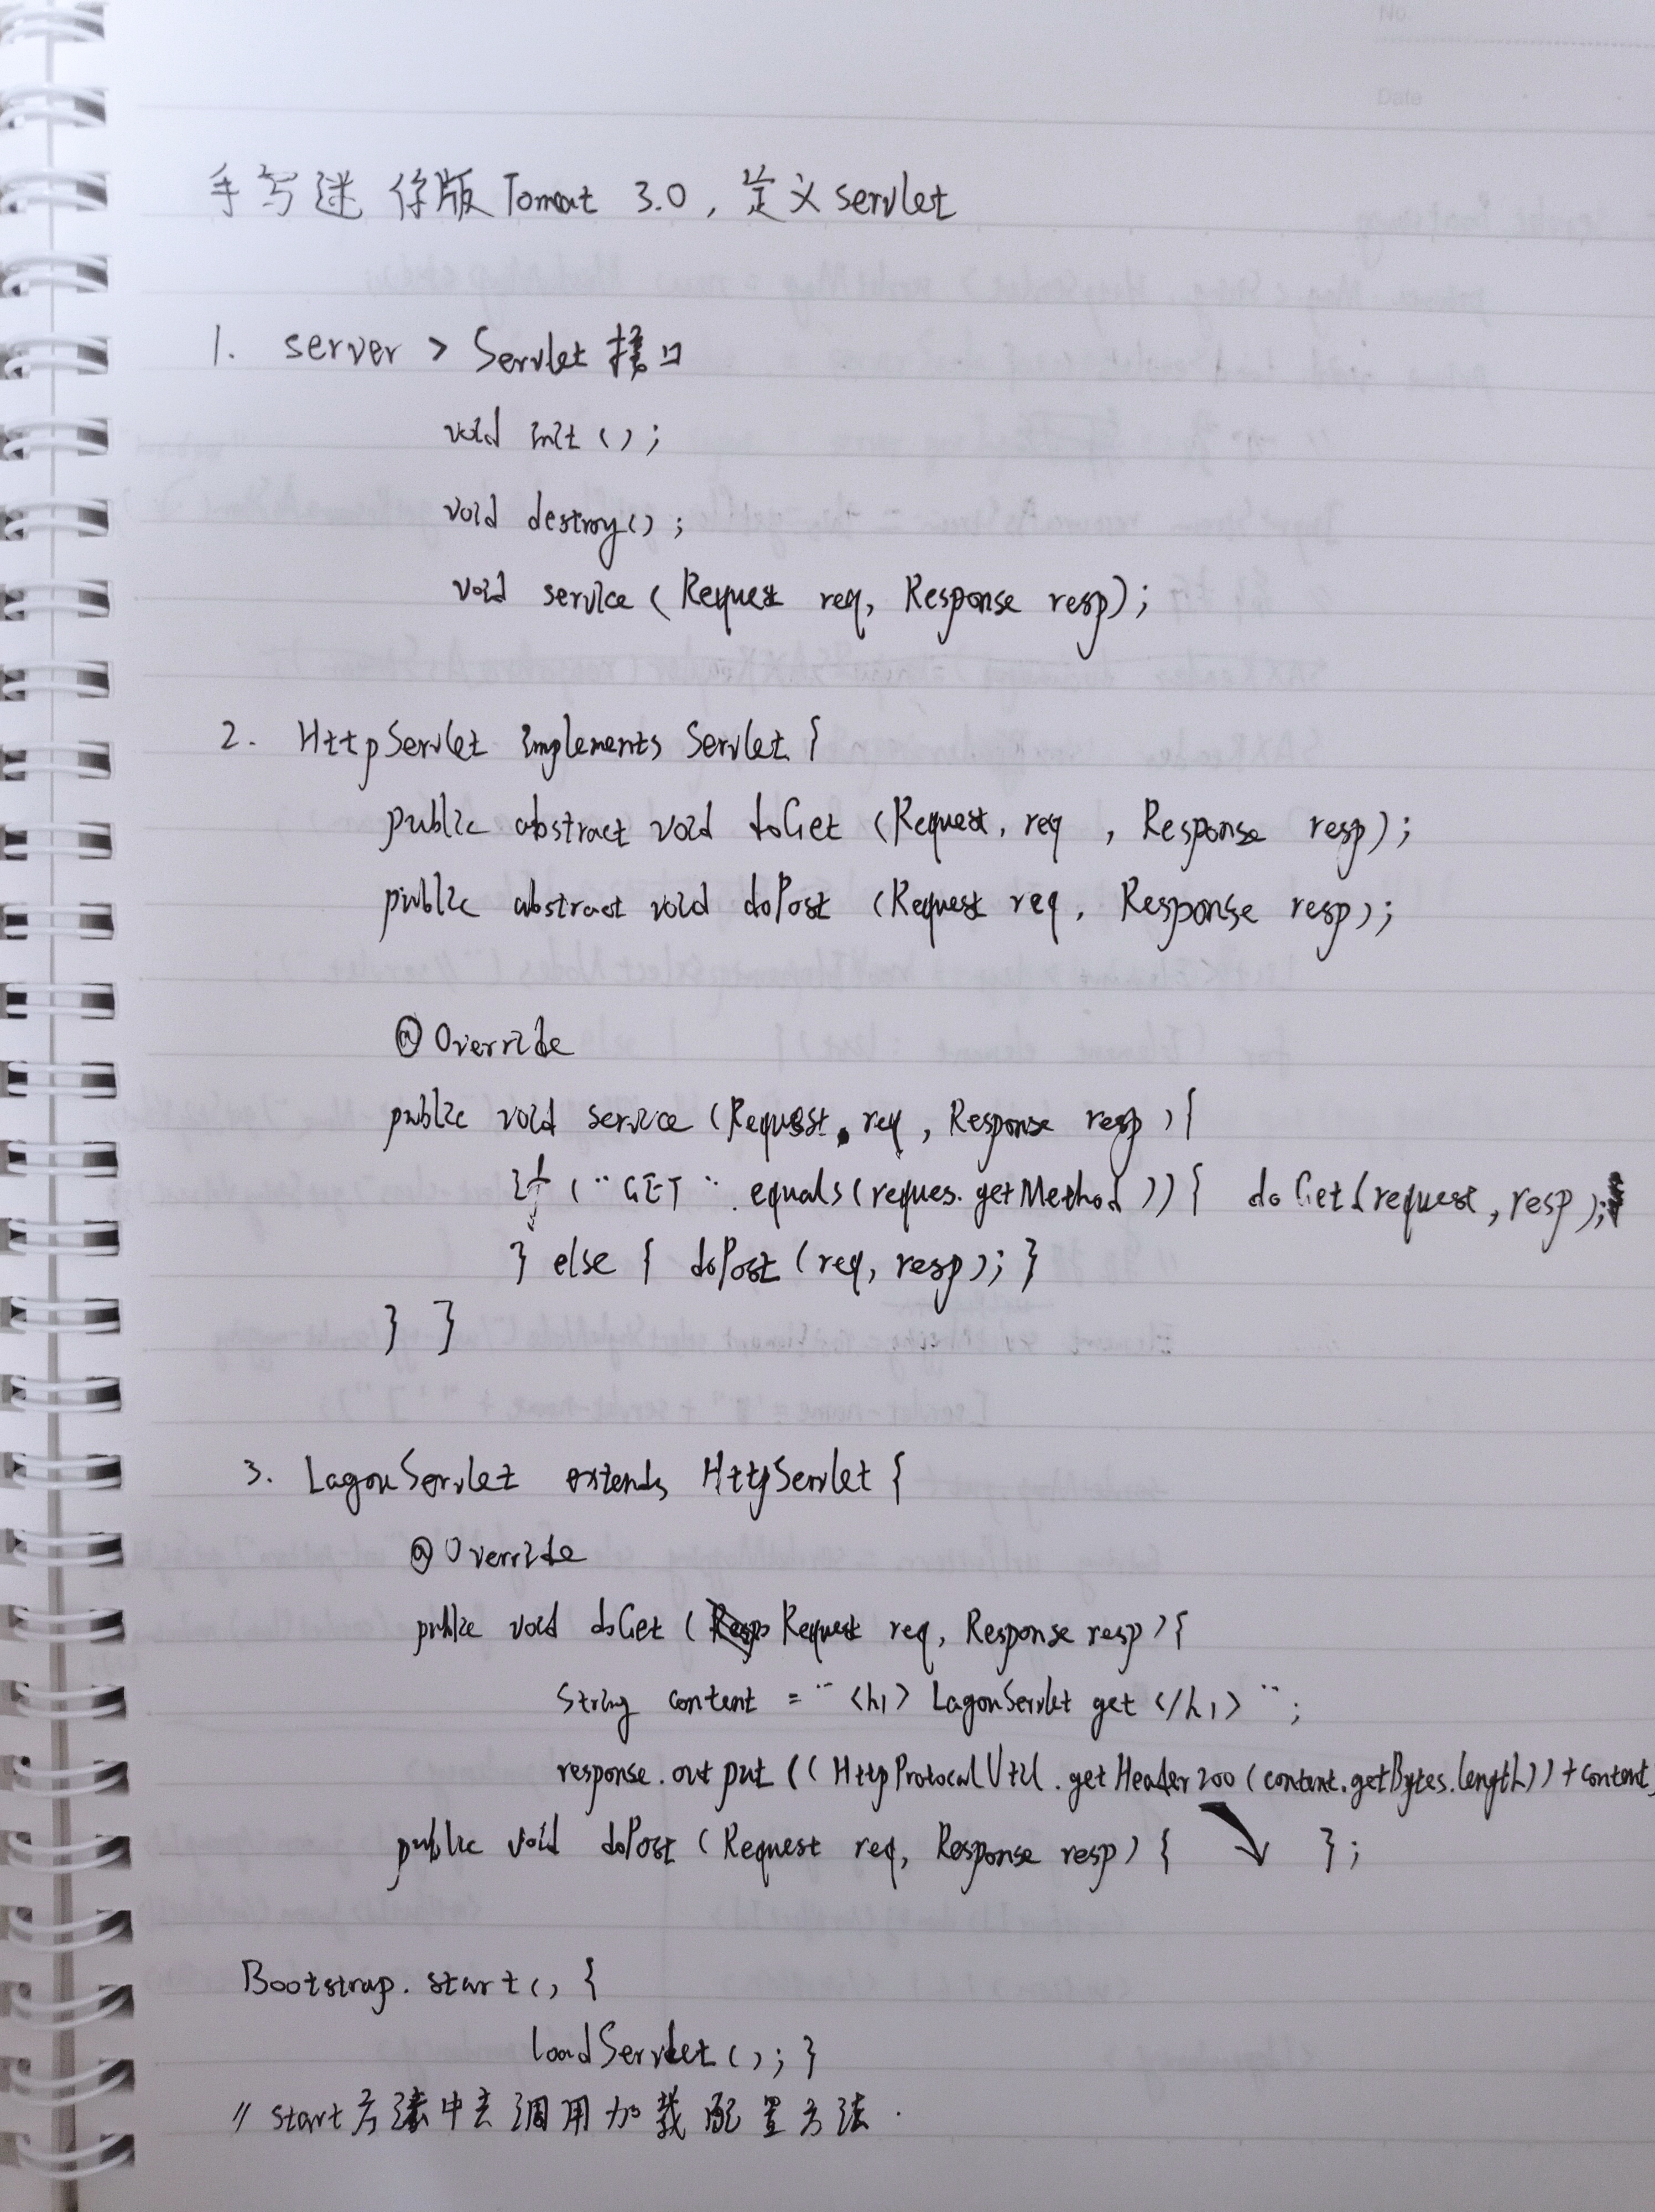 No.
Date
手写迷你版 Tomcat 3.0, 定义 servlet
1. server > Servlet 接口
void init();
void destroy();
void service (Request req, Response resp);
2. HttpServlet implements Servlet {
public abstract void doGet (Request, req , Response resp);
public abstract void doPost (Request req, Response resp);
@Override
public void service (Request, req, Response resp) {
if ("GET".equals(reques.getMethod)) { doGet(request, resp);
} else { doPost (req, resp); }
} }
3. LagouServlet extends HttpServlet {
@Override
public void doGet (Request req, Response resp) {
String content = "<h1> LagouServlet get </h1>";
response.output ((HttpProtocalUtil.getHeader200 (content.getBytes.length)) + content
public void doPost (Request req, Response resp) { };
Bootstrap.start() {
loadServlet(); }
// start方法中去调用加载配置方法.